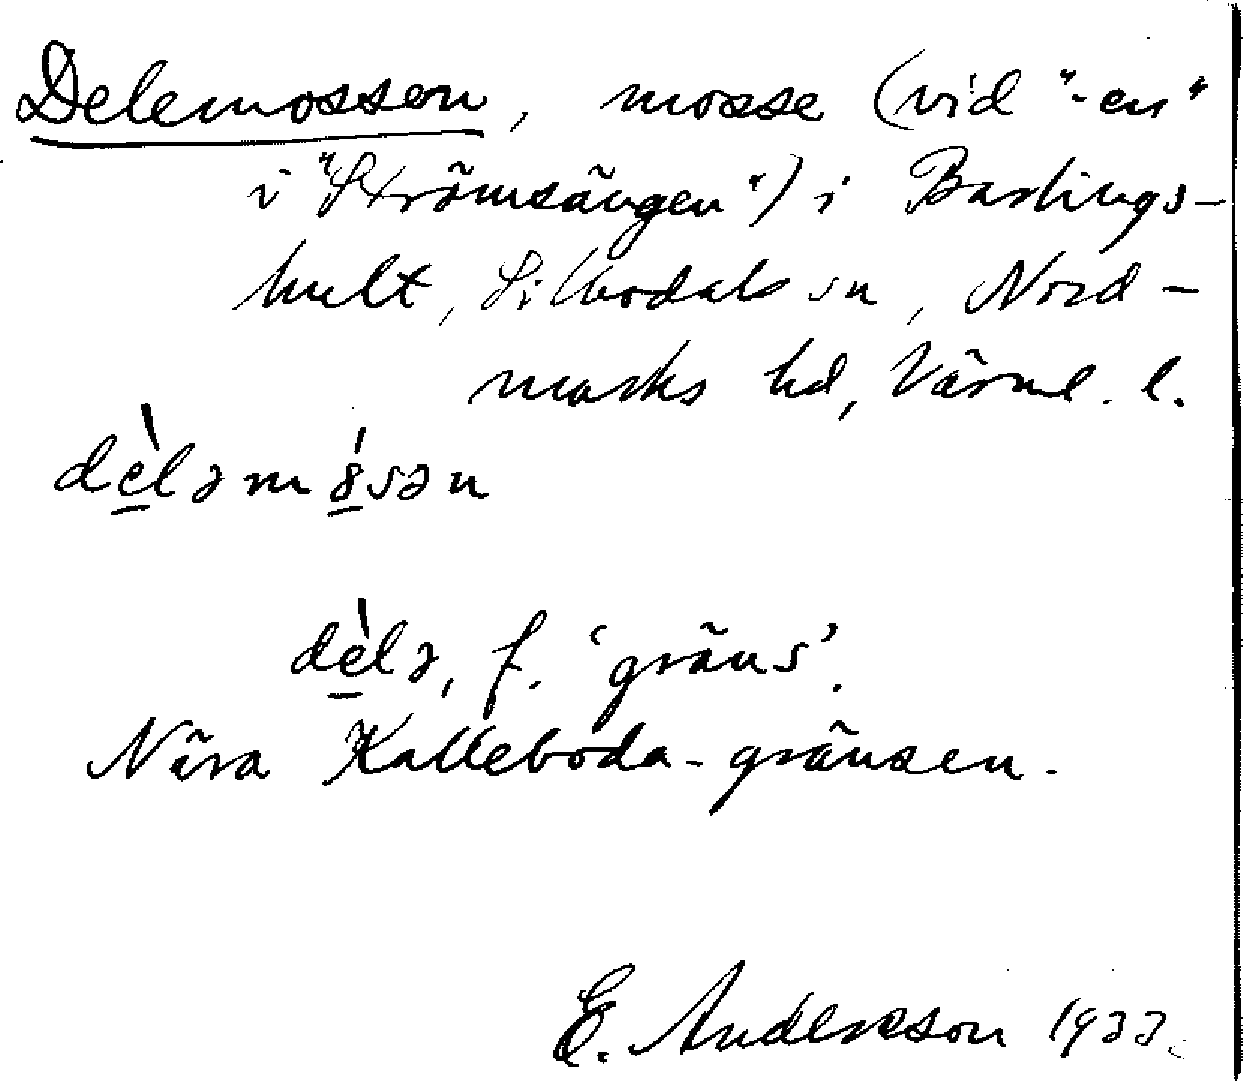 Delemossen, mosse (vid "-en"
i "Strömsängen") i Bastings-
hult, Silbodals sn, Nord-
marks hd, Värml. l.
dèləmósən
dèlə, f. 'gräns'.
Nära Kalleboda-gränsen.
E. Anderson 1933.